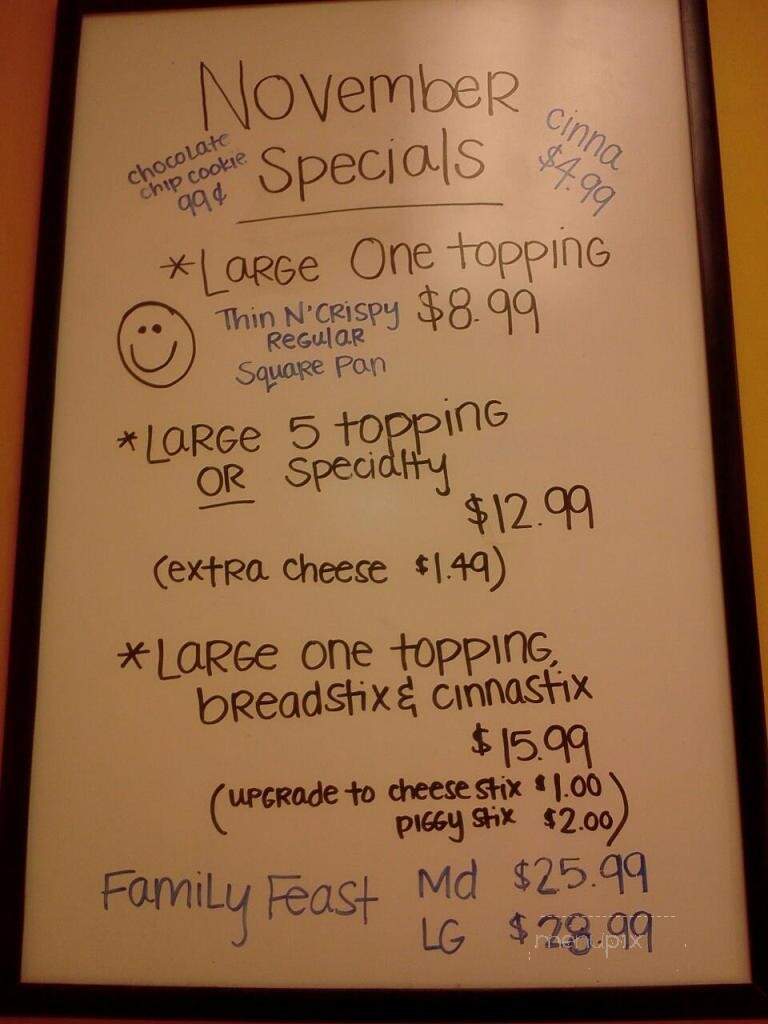 November
Specials
chocolate
chip cookie
99¢
cinna
$4.99
*Large One topping
Thin N'Crispy $8.99
Regular
Square Pan
*Large 5 topping
OR Specialty
$12.99
(extra cheese $1.49)
*Large one topping,
breadstix & cinnastix
$15.99
(upgrade to cheese stix $1.00
piggy stix $2.00)
Family Feast Md $25.99
LG $28.99
menupix